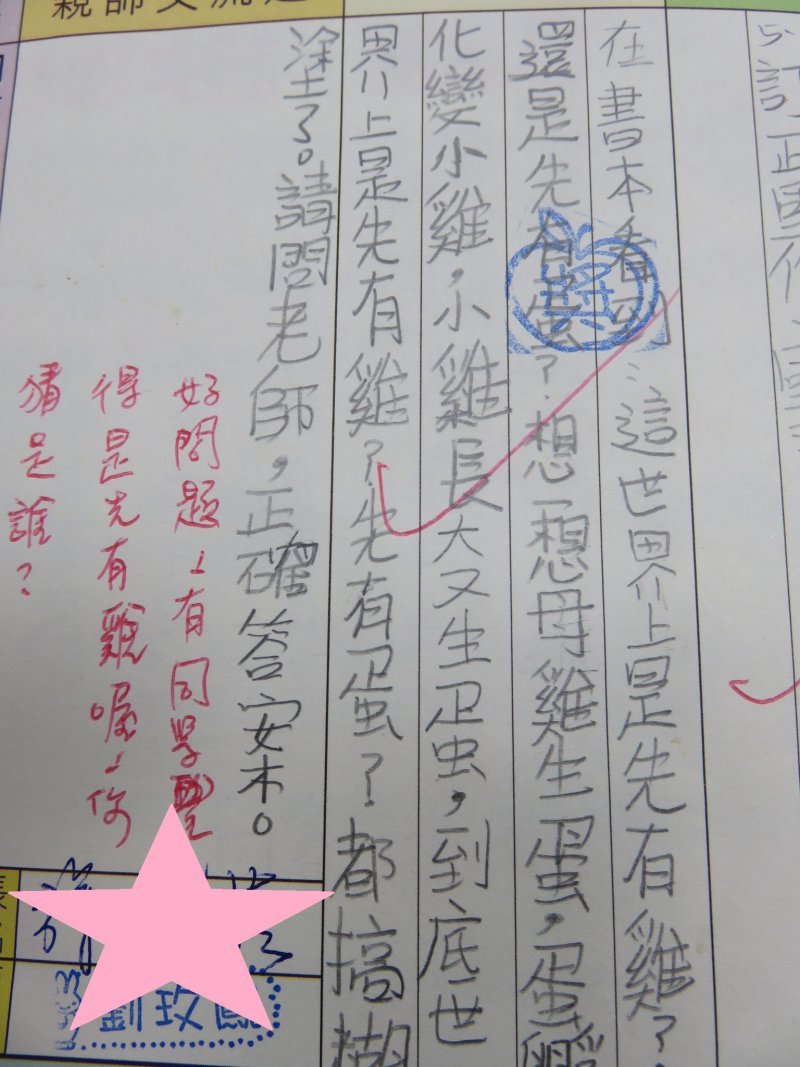 在書本看到:這世界上是先有雞?
還是先有蛋?想一想母雞生蛋,蛋孵
化變小雞,小雞長大又生蛋,到底世
界上是先有雞?先有蛋?都搞糊
塗了。請問老師,正確答案。
好問題!有同學覺
得是先有雞喔!你
猜是誰?
獎
劉玫